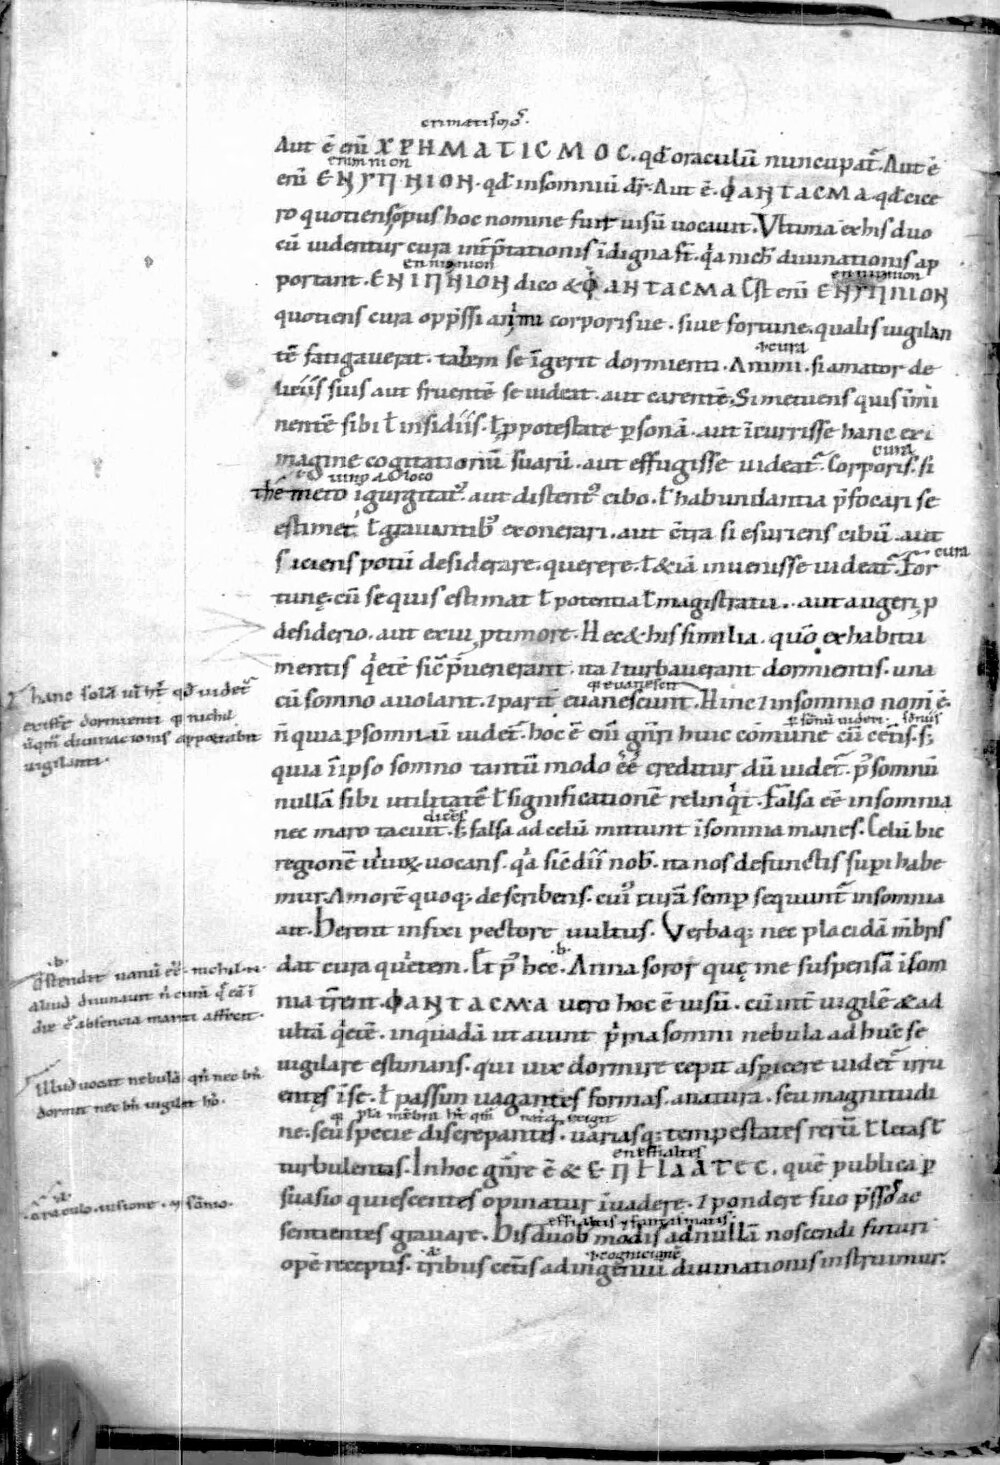 crimatismos.
Aut ē eni̅ ΧΡΗΜΑΤΙCΜΟC. qd̅ oraculū nuncupat̅. Aut ē
enim nion
eni̅ ЄΝΥΠΝΙΟΝ. qd̅ insomniū dr̅. Aut ē. ΦΑΝΤΑCΜΑ. qd̅ cice
ro quotiens op̅us hoc nomine fuit uisū uocauit. Vltima ex his duo
cū uidentur cura int̅p̅tationis īdigna st̅. q̇a nich̅ diuinationis ap
ennipnion ennipnion
portant. ЄΝΙΠΝΙΟΝ dico & ΦΑΝΤΑCΜΑ Est eni̅ ЄΝΥΠΝΙΟΝ
quotiens cura opp̅ssi animi corporis ue. siue fortune. qualis uigilan
.i. cura
tē fatigauerit. talem se īgerit dormienti. Animi. si amator de
liciis suis aut fruentē se uideat. aut carentē. Si metuens quis imi
nentē sibi ł insidiis. ł ꝑ potestate ꝑsonā. aut īcurrisse hanc exi
cura
magine cogitationū suarū. aut effugisse uideat̅. Corporis. si
themeto īgurgitat᷒. aut distent᷒ cibo. ł habundantia p̅focari se
estimet. ł grauantib᷒ exonerari. aut c̅tra si esuriens cibū. aut
cura
siciens potū desiderare. querere. ł &iā inuenisse uideat̅. For
tunę. cū se quis estimat ł potentia ł magistratu.. aut augeri ꝑ
desiderio. aut exui ꝑ timore. Hec & his similia. quo̅ ex habitu
mentis q̇etē sic̅ p̅uenerant. ita ⁊ turbauerant dormientis. una
q̅ euanescit
cū somno auolant. ⁊ parit̅ euanescunt. Hinc ⁊ insomnio nom̅ ē.
n̅ quia ꝑ somniū uidet̅. hoc ē eni̅ gn̅ri huic comune cū cet̅is. s;
quia īipso somno tantū modo ee̅ creditur dū uidet̅. p̅ somnū
nullā sibi utilitatē ł significationē relinq̇t. Falsa ee̅ insomnia
dice̅s
nec maro tacuit. s; falsa ad celū mittunt īsomnia manes. Celū hic
regionē uiuoꝝ uocans. q̇a sic̅ dii nob̅. ita nos defunctis sup̅i habe
mur. Amorē quoq; describens. cui᷒ curā semp̅ sequunt̅ insomnia
ait. Herent infixi pectore uultus. Verbaq; nec placidā m̅bris
.b.
dat cura quietem. Et p̅ hec. Anna soror quę me suspensā īsom
nia t̅rent. ΦΑΝΤΑCΜΑ uero hoc ē uisū. cū int̅ uigilē & ad
ultā q̇etē. in quadā ut aiunt ṗma somni nebula adhuc se
uigilare estimans. qui uix dormire cepit aspicere uidet̅ irru
entes ī se. ł passim uagantes formas. a natura. seu magnitudi
ne. seu specie discrepantes. uariasq; tempestates rerū ł letas ł
en effialtes
turbulentas. In hoc gn̅re ē & ЄΠΙΑΛΤΕC. quē publica ꝑ
suasio quiescentes opinatur īuadere. ⁊ pondere suo p̅ssos ac
sentientes grauare. His duob᷒ modis ad nullā noscendi futuri
.i. cognicione̅
opē receptis. tribus cet̅is ad ingeniū diuinationis instruimur.
hanc solā uī ht̅ qd̅ uidet̅
existe̅ dormienti q̅ nichil
diuinacionis apportabit
uigilanti.
.b.
ostendit uanū ee̅. nichil
aliud diuinauit n̅ curā
de absencia mariti afficit.
Illud uocat nebulā qn̅ nec bn̅
dormit nec bn̅ uigilat ho̅.
oraculo. uisione. ⁊ so̅nio.